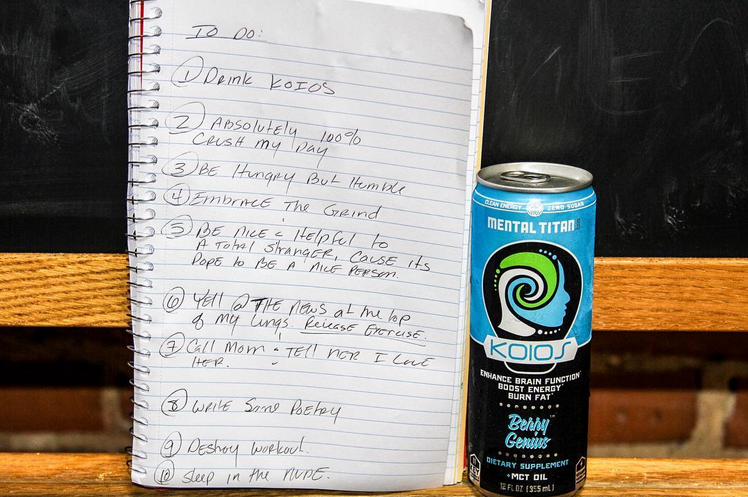 TO DO:
① Drink KOIOS
② ABSOLUTELY 100%
CRUSH my DAY
③ BE Hungry But Humble
④ EMBRACE The Grind
⑤ BE NICE & Helpful to
A Total Stranger, CAUSE its
DOPE to BE A NICE PERSON.
⑥ Yell @ THE NEWS at the top
of my lungs. Release Exercise.
⑦ Call Mom & TELL HER I Love
HER.
⑧ WRITE Some Poetry
⑨ Destroy Workout.
⑩ Sleep in the NUDE.
CLEAN ENERGY
ZERO SUGAR
MENTAL TITAN
KOIOS
ENHANCE BRAIN FUNCTION*
BOOST ENERGY*
BURN FAT*
Berry
Genius™
DIETARY SUPPLEMENT
+MCT OIL
12 FL OZ (355 mL)